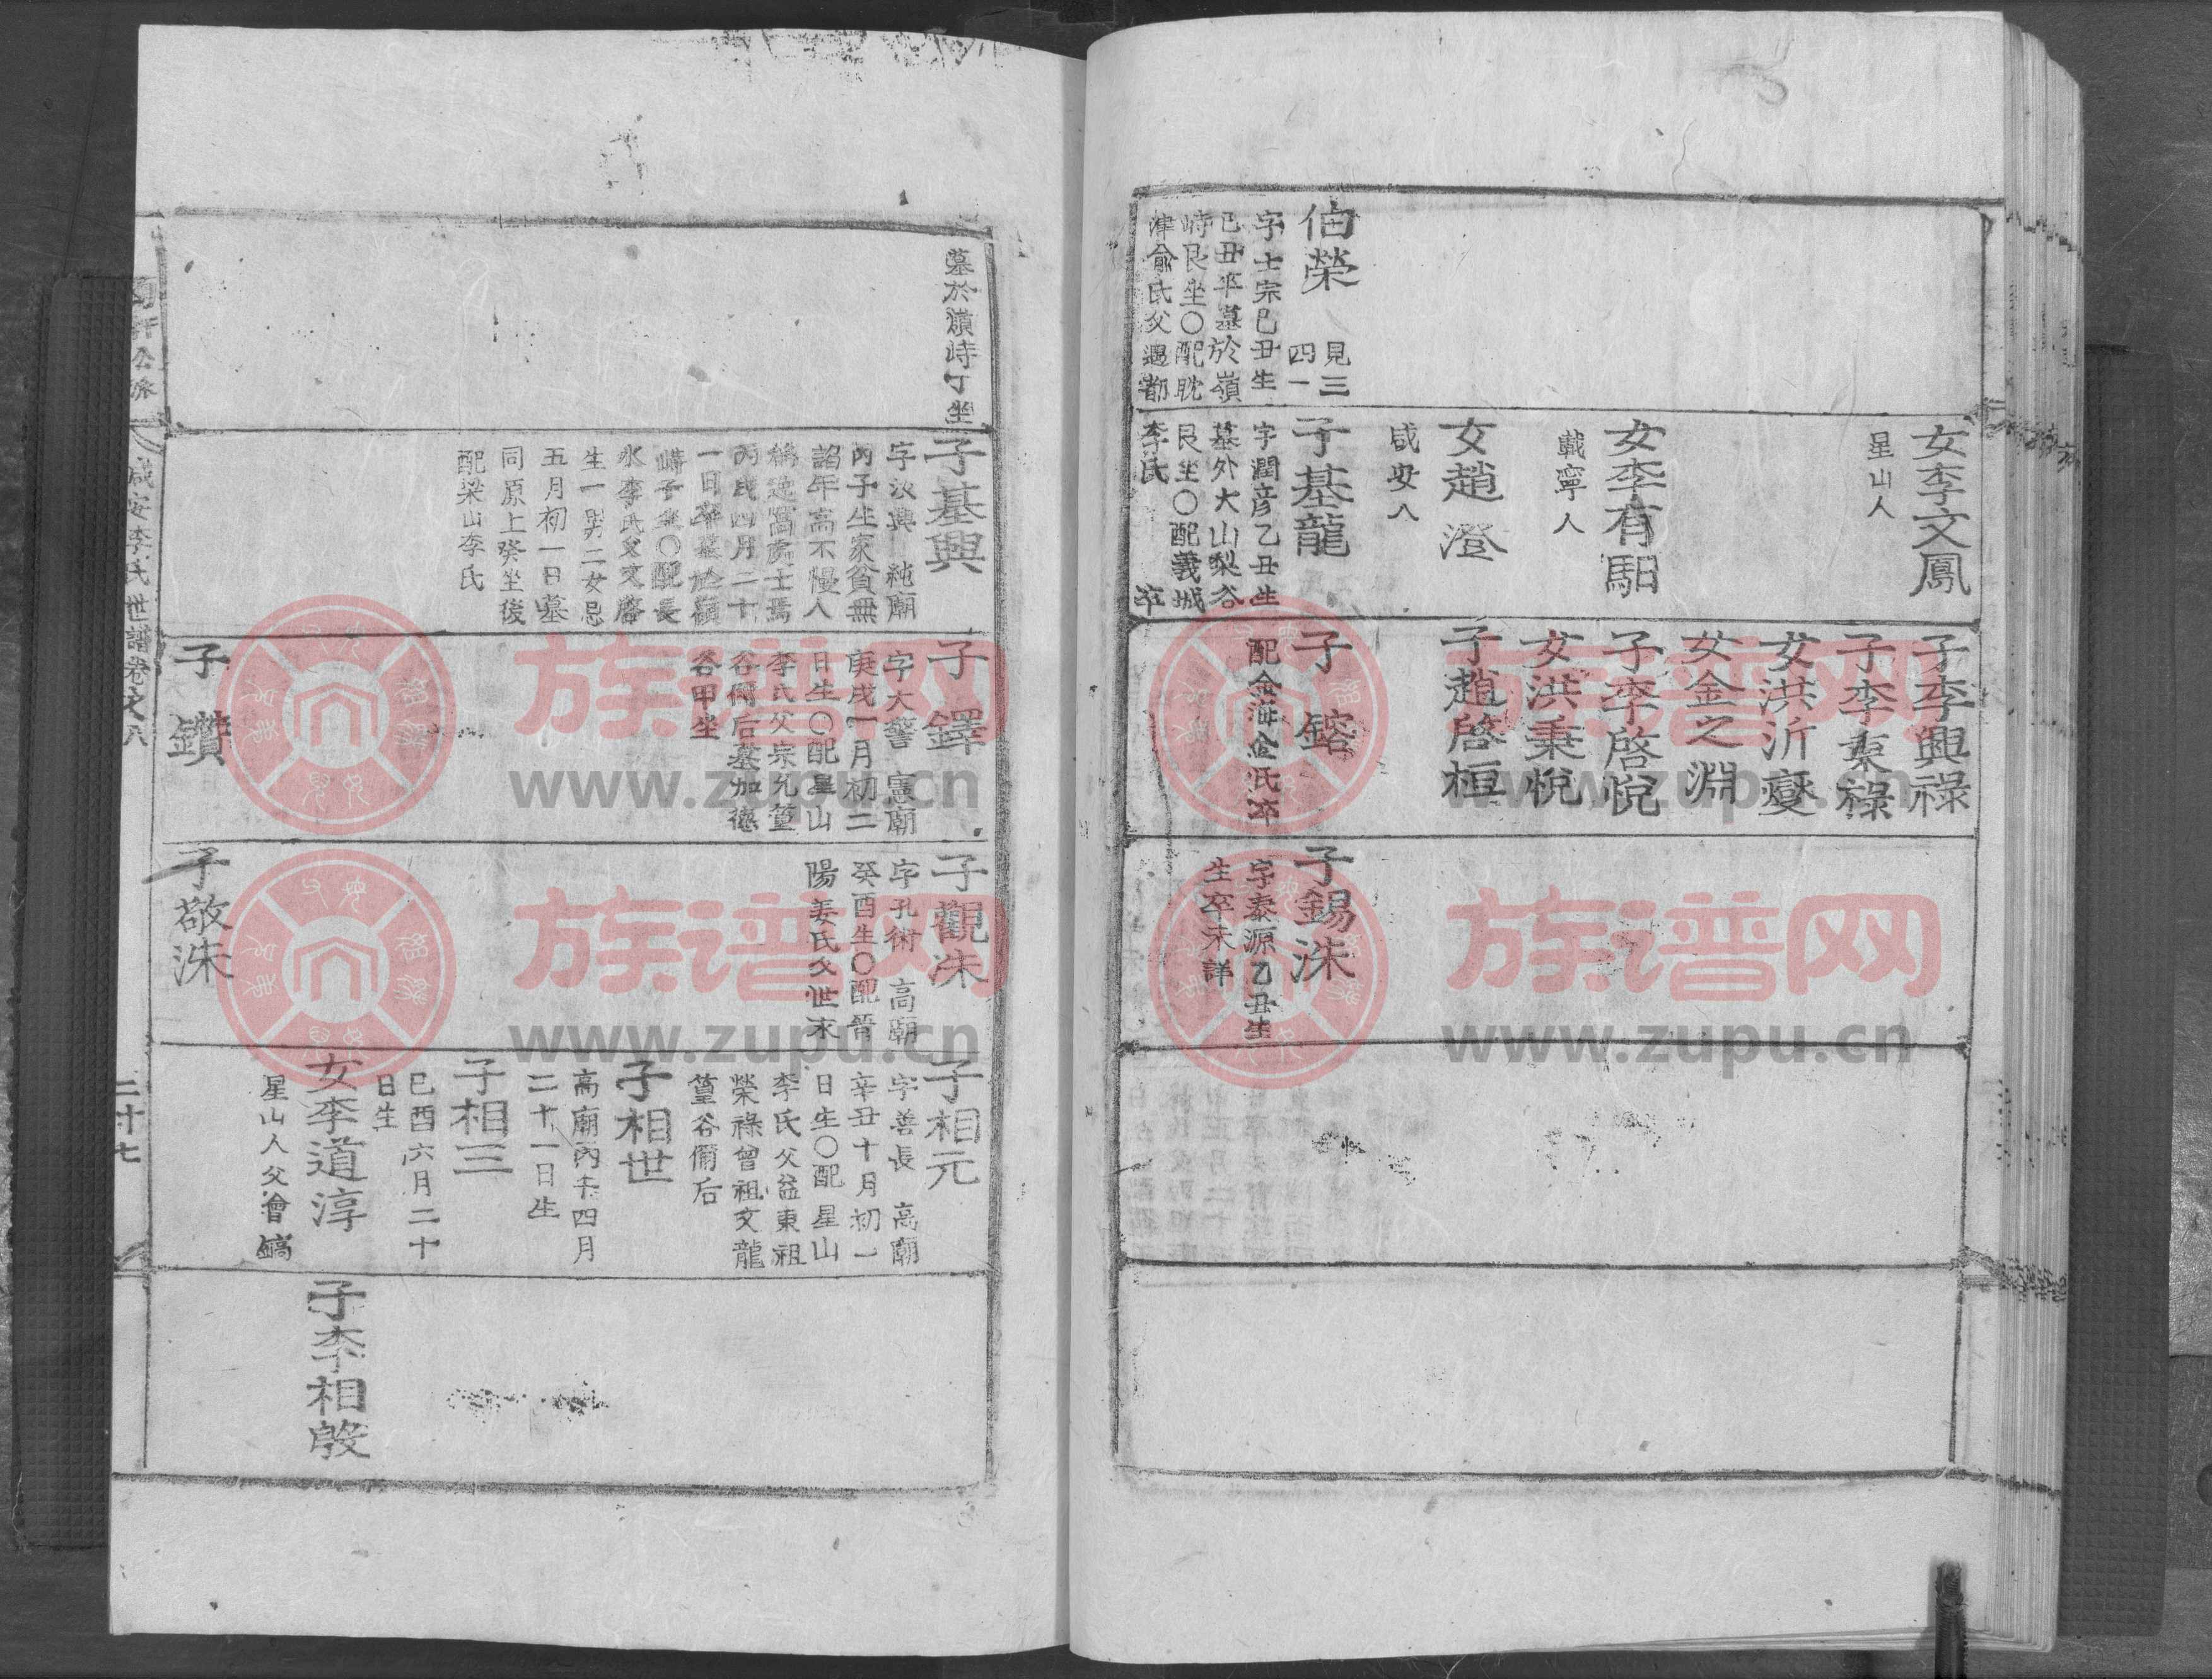 女李文鳳
星山人
女李有馹
載寧人
女趙澄
咸安人
子李興祿
子李秉祿
女洪沂燮
女金之淵
子李啓悅
女洪秉悅
子趙啓桓
伯榮
見三
四一
字士宗己丑生
己丑卒墓於嶺
峙艮坐〇配耽
津俞氏父遇都
子基龍
字潤彦乙丑生
墓外大山梨谷
艮坐〇配義城
李氏 卒
子鎔
配金海金氏卒
子錫洙
字泰源乙丑生
生卒未詳
墓於嶺峙丁坐
子基興
字汝興 純廟
丙子生家貧無
諂年高不慢人
稱逸篤處士焉
丙戌四月二十
一日卒墓於嶺
峙子坐〇配長
水李氏父文啓
生一男二女忌
五月初一日墓
同原上癸坐後
配梁山李氏
子鐸
字大警 憲廟
庚戌一月初二
日生〇配星山
李氏父宗允篁
谷儞后墓加德
谷甲坐
子鑽
子觀洙
字孔術 高廟
癸酉生〇配晉
陽姜氏父世永
子敬洙
子相元
字善長 高廟
辛丑十月初一
日生〇配星山
李氏父益東祖
榮祿曾祖文龍
篁谷儞后
子相世
高廟丙午四月
二十一日生
子相三
己酉六月二十
日生
女李道淳
星山人父會鎬
子李相殷
公派
咸安李氏世譜卷之八
二十七
族谱网
www.zupu.cn
族谱网
www.zupu.cn
族谱网
www.zupu.cn
族谱网
www.zupu.cn